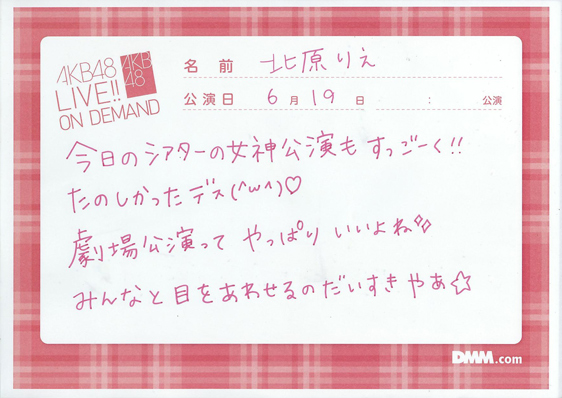 AKB48
LIVE!!
ON DEMAND
AKB
48
名 前 北原りえ
公演日 6月19日 : 公演
今日のシアターの女神公演もすっごーく!!
たのしかったデス(^w^)♡
劇場公演って やっぱりいいよね
みんなと目をあわせるのだいすきやあ☆
DMM.com